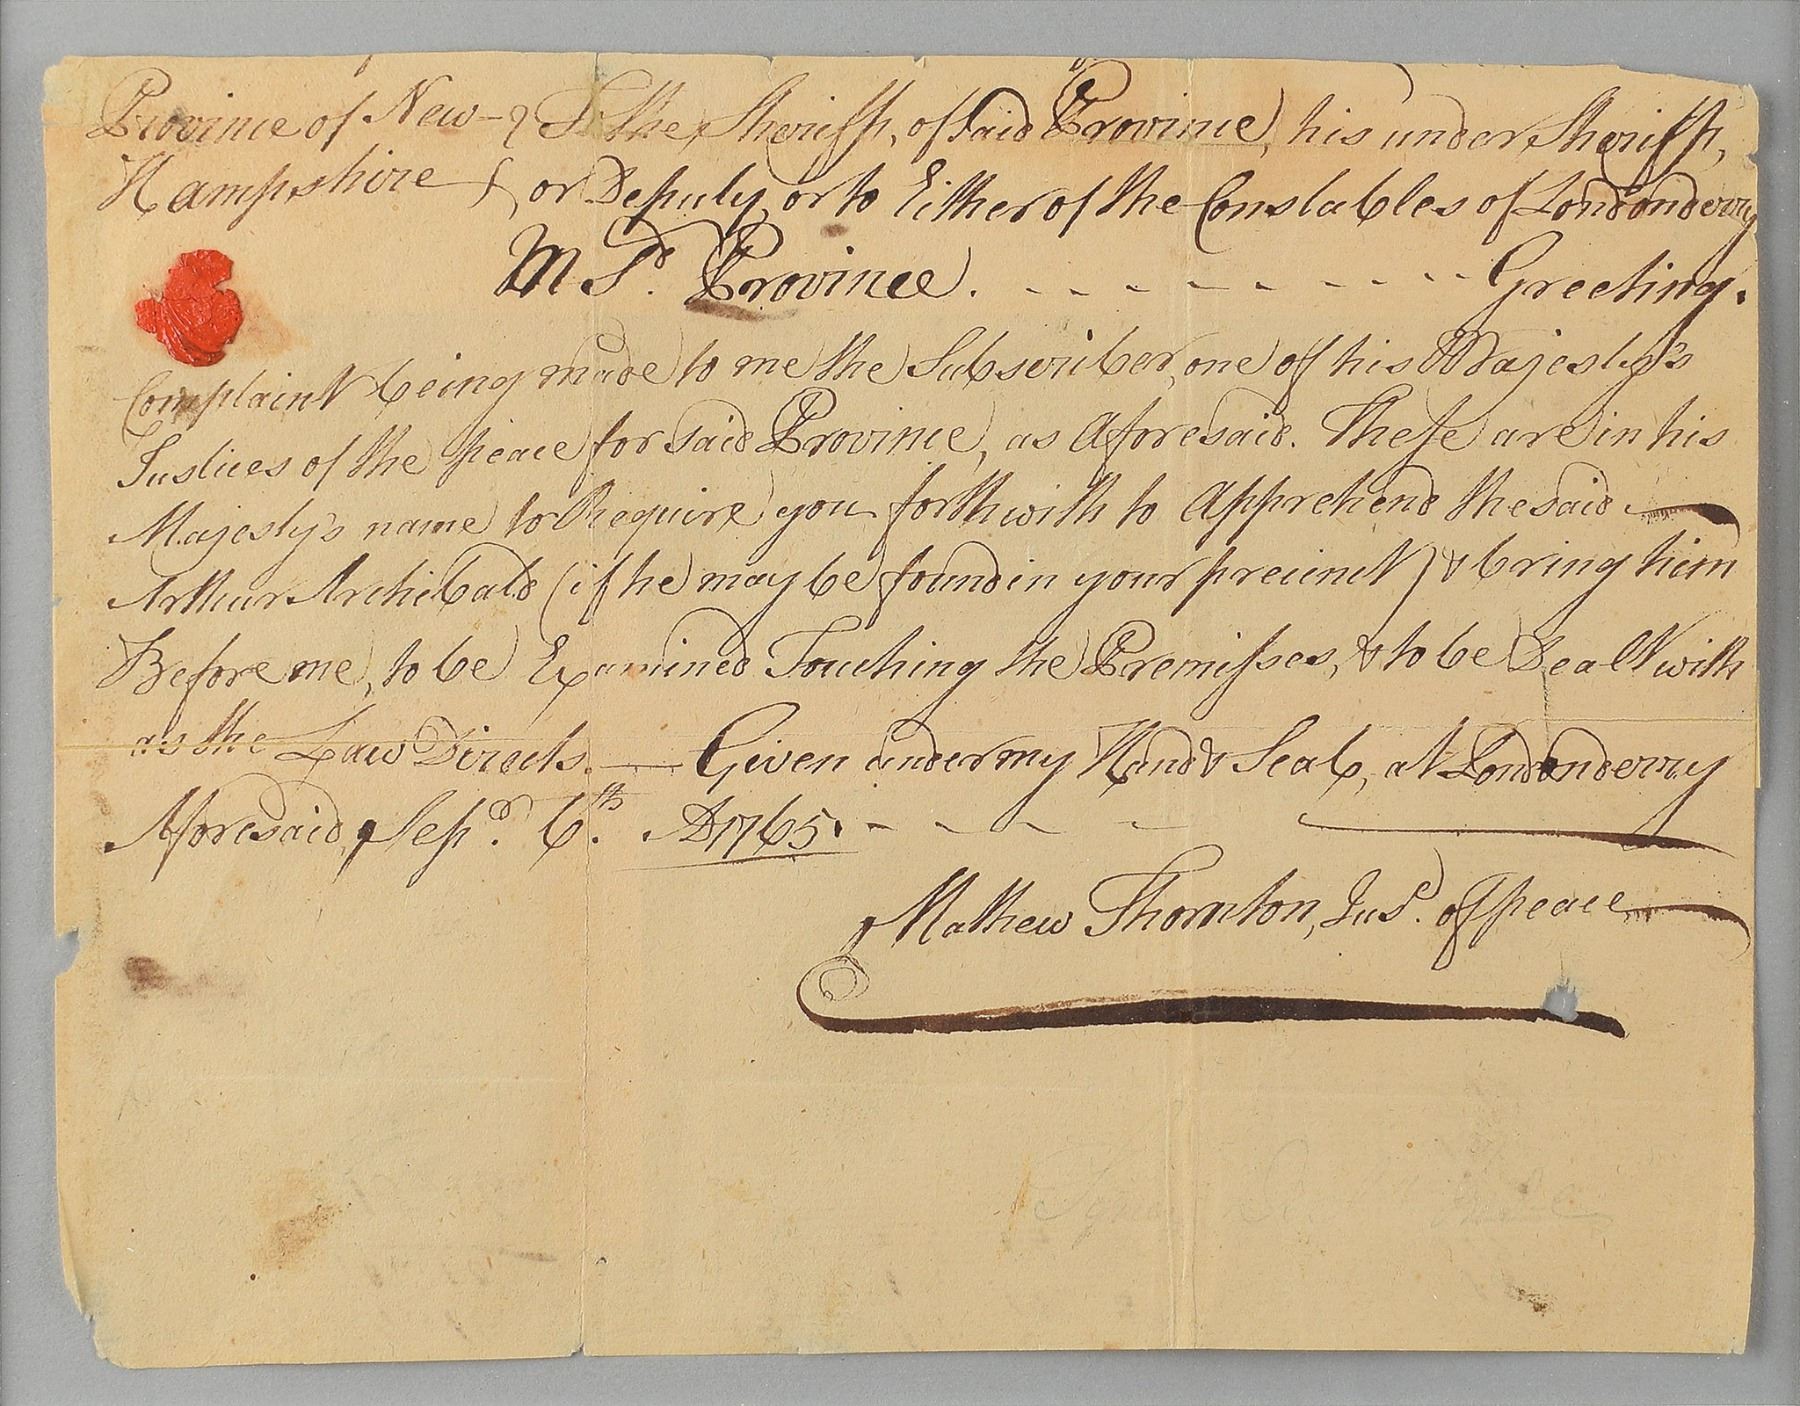 Province of New- } To the Sheriff, of said Province, his under Sheriff,
Hampshire } or Deputy, or to Either of the Constables of Londonderry
In Sd. Province. - - - - - - - - Greeting.
Complaint being made to me the Subscriber, one of his Majesty's
Justices of the peace for said Province, as Aforesaid. These are in his
Majesty's name to Require you forthwith to Apprehend the said —
Arthur Archibald (if he may be found in your precinct) & bring him
Before me, to be Examined Touching the Premisses, & to be Dealt with
as the Law Directs. — Given under my Hand & Seal, at Londonderry
Aforesaid, Sepd. 6th. AD 1765. - - - -
Mathew Thornton, Jusd. of peace